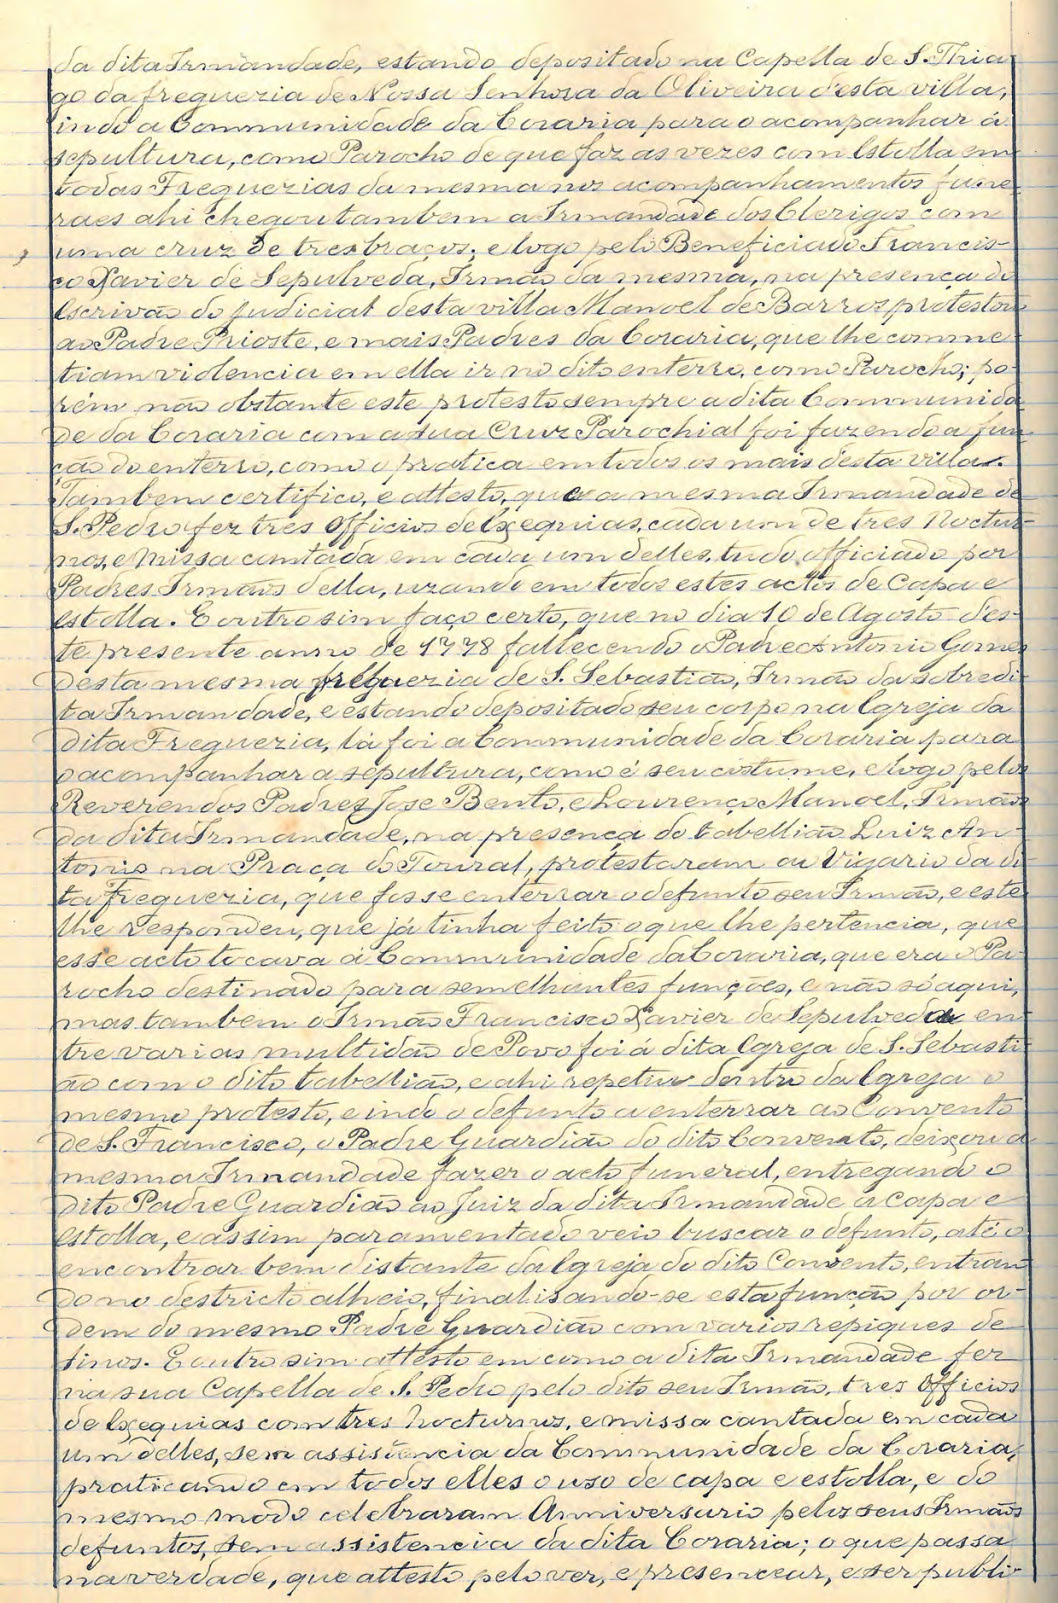 da dita Irmandade, estando depositado na Capella de S. Thia
go da freguezia de Nossa Senhora da Oliveira d'esta villa,
indo a Communidade da Coraria para o acompanhar á
sepultura, como Parocho de que faz as vezes com Estolla em
todas Freguezias da mesma nos acompanhamentos fune-
raes ahi chegou tambem a Irmandade dos Clerigos com
uma cruz de tres braços; e logo pelo Beneficiado Francis-
co Xavier de Sepulveda, Irmão da mesma, na presença do
Escrivão do Judicial desta villa Manoel de Barros protestou
ao Padre Prioste, e mais Padres da Coraria, que lhe comme-
tiam violencia em ella ir no dito enterro, como Parocho; po-
rém não obstante este protesto sempre a dita Communida
de da Coraria com a sua Cruz Parochial foi fazendo a fun
ção do enterro, como o pratica em todos os mais desta villa.
Tambem certifico, e attesto, que a mesma Irmandade de
S. Pedro fez tres Officios de Exequias, cada um de tres Noctur-
nos, e Missa cantada em cada um delles, tudo officiado por
Padres Irmãos della, uzando em todos estes actos de Capa e
Estolla. E outro sim faço certo, que no dia 10 de Agosto d'es-
te presente anno de 1778 fallecendo o Padre Antonio Gomes
desta mesma freguezia de S. Sebastião, Irmão da sobredi-
ta Irmandade, e estando depositado seu corpo na Egreja da
dita Freguezia, lá foi a Communidade da Coraria para
o acompanhar a sepultura, como é seu costume, e logo pelos
Reverendos Padres Jose Bento, e Lourenço Manoel, Irmãos
da dita Irmandade, na presença do tabellião Luiz An-
tonio na Praça do Toural, protestaram ao Vigario da di-
ta Freguezia, que fosse enterrar o defunto seu Irmão, e este
lhe respondeu, que já tinha feito o que lhe pertencia, que
esse acto tocava á Communidade da Coraria, que era o Pa-
rocho destinado para semelhantes funções, e não só aqui,
mas tambem o Irmão Francisco Xavier de Sepulveda en-
tre varias multidão de Povo foi á dita Egreja de S. Sebasti-
ão com o dito tabellião, e ahi repetiu dentro da Egreja o
mesmo protesto, e indo o defunto a enterrar ao Convento
de S. Francisco, o Padre Guardião do dito Convento, deixou a
mesma Irmandade fazer o acto funeral, entregando o
dito Padre Guardião ao Juiz da dita Irmandade a capa e
Estolla, e assim paramentado veio buscar o defunto, até o
encontrar bem distante da Egreja do dito Convento, entran
do no destricto alheio, finalisando-se esta função por or-
dem do mesmo Padre Guardião com varios repiques de
sinos. E outro sim attesto em como a dita Irmandade fez
na sua Capella de S. Pedro pelo dito seu Irmão, tres Officios
de Exequias com tres Nocturnos, e missa cantada em cada
um delles, sem assistencia da Communidade da Coraria,
praticando em todos elles o uso de capa e estolla, e do
mesmo modo celebraram Anniversario pelos seus Irmãos
defuntos, sem assistencia da dita Coraria; o que passa
na verdade, que attesto pelo ver, e presencear, e ser publi-